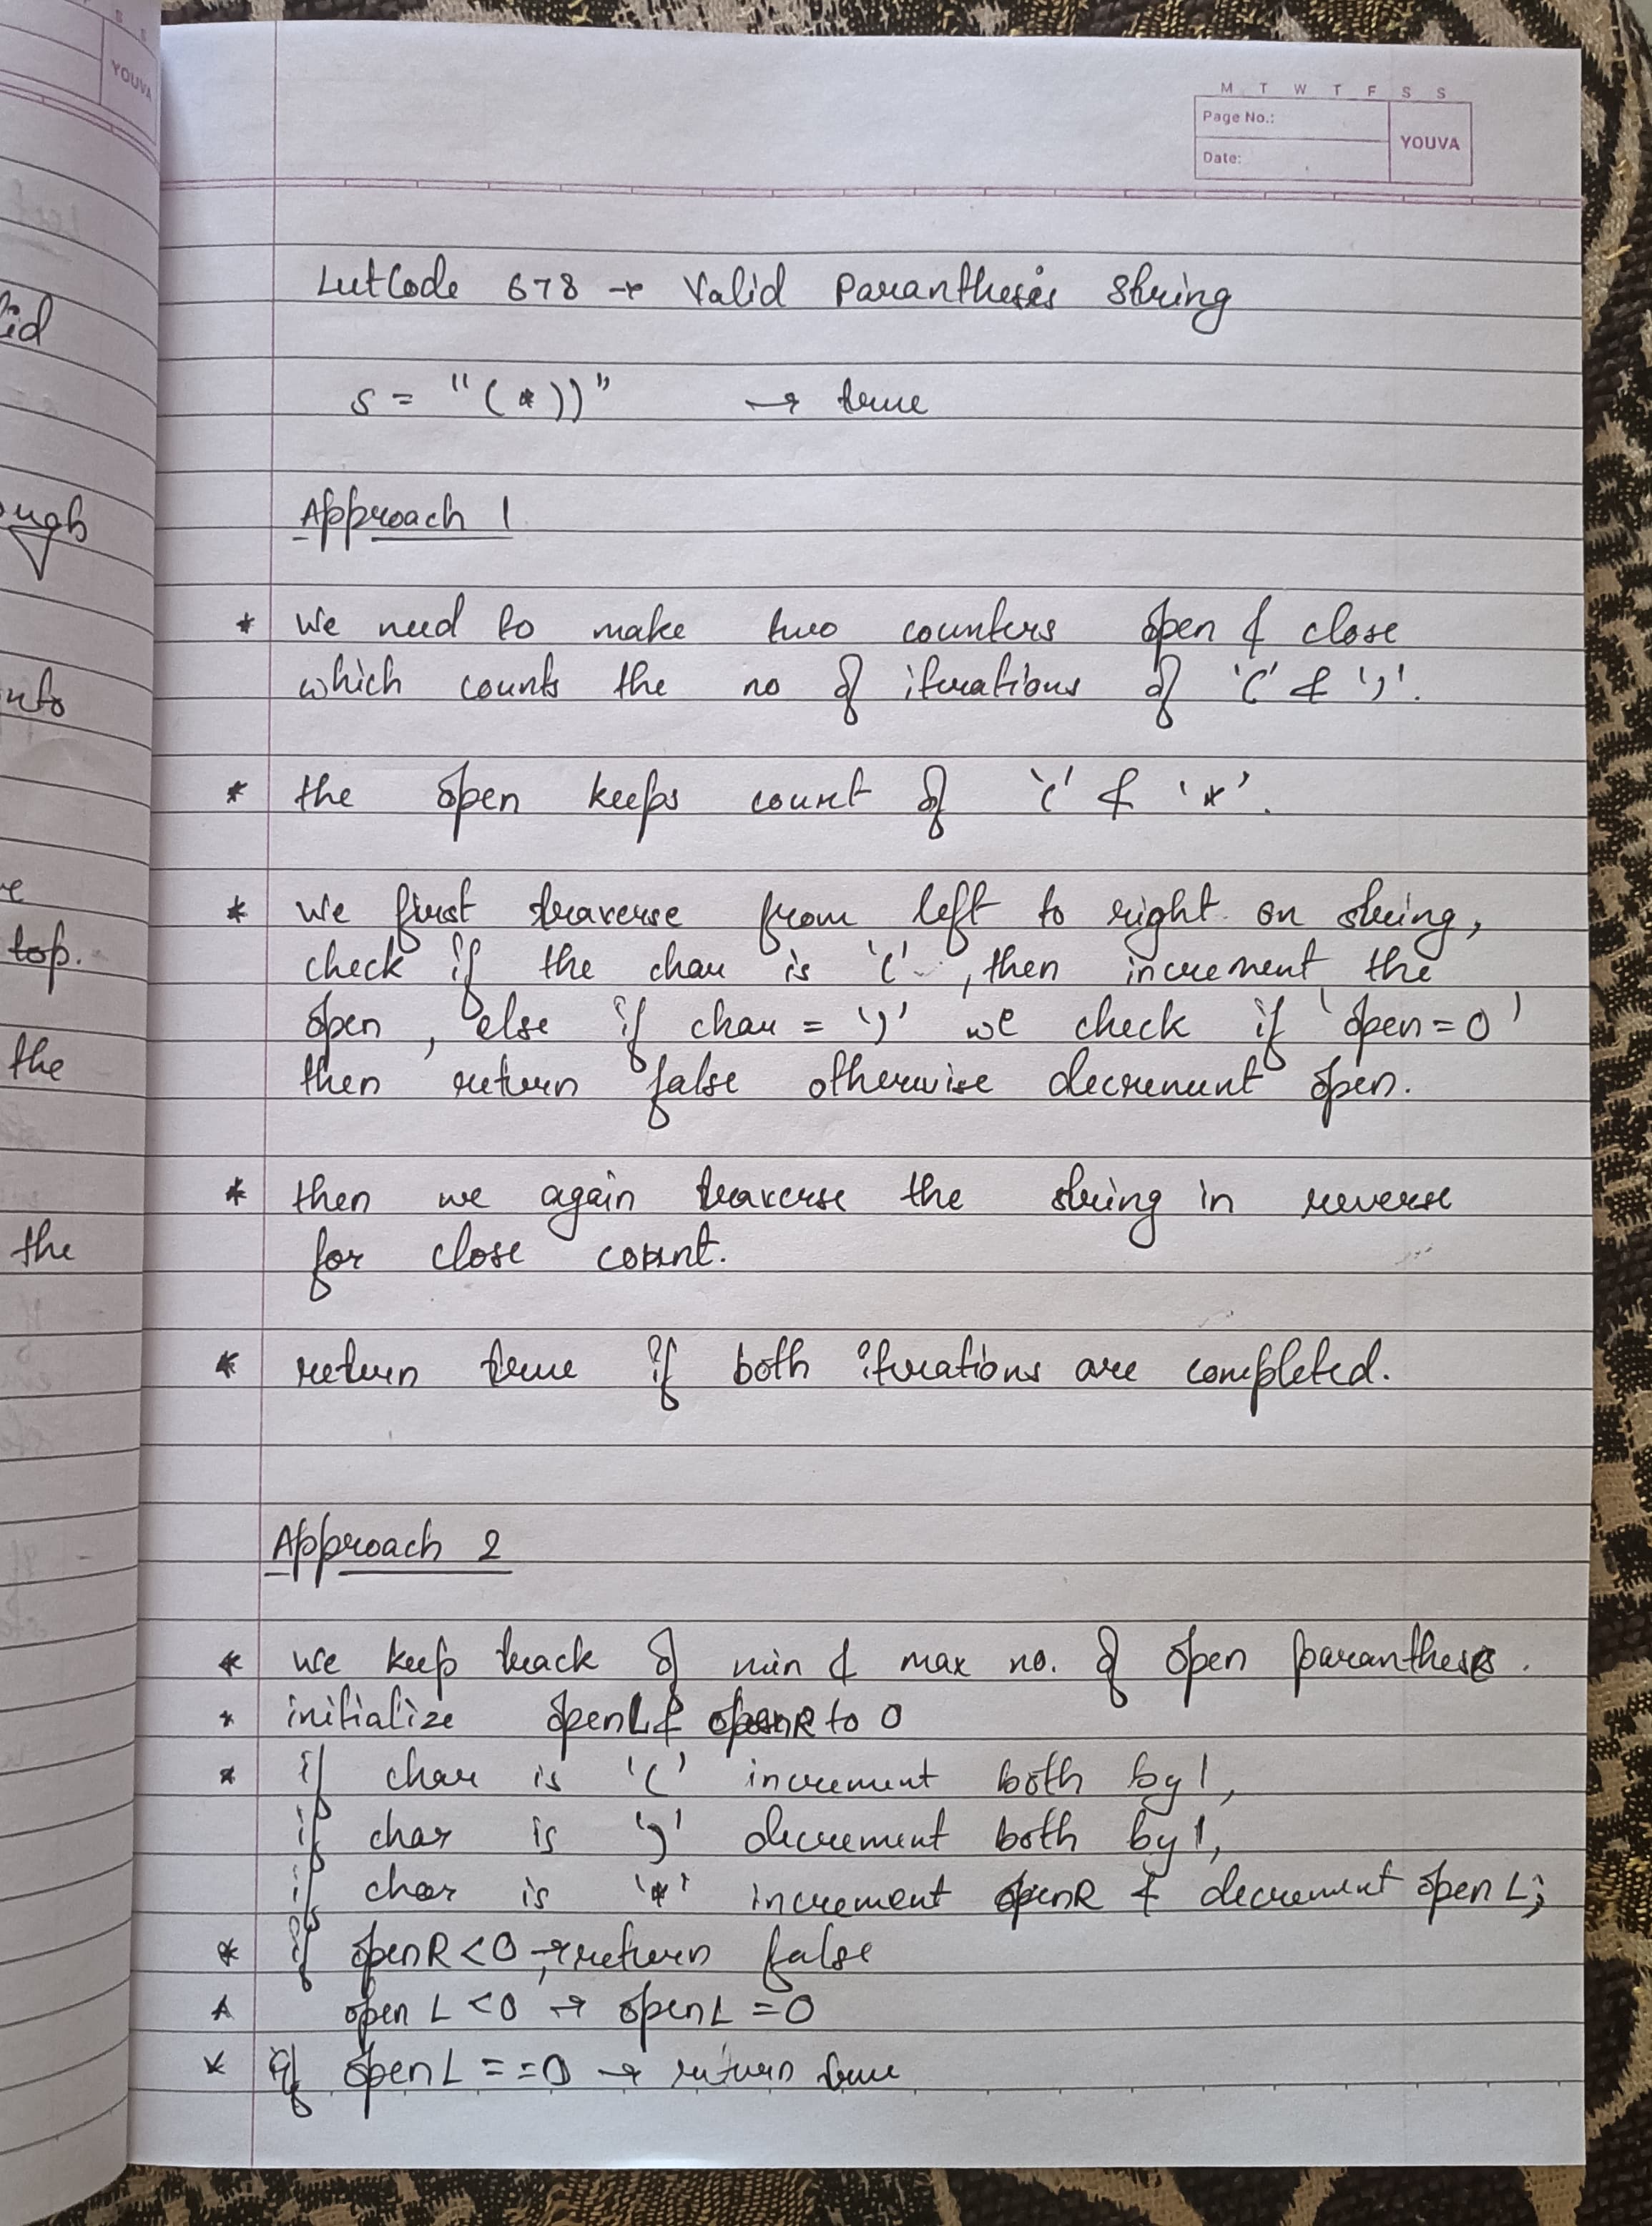 YOUVA
lid
ough
into
re
top.
the
the
M T W T F S S
Page No.:
YOUVA
Date:
LeetCode 678 → Valid Paranthesis String
S = "(*))" → true
Approach 1
* we need to make two counters open & close
which counts the no of iterations of '(' & ')'.
* the open keeps count of '(' & '*'.
* we first traverse from left to right on string,
check if the char is '(' , then increment the
open, else if char = ')' we check if 'open=0'
then return false otherwise decrement open.
* then we again traverse the string in reverse
for close count.
* return true if both iterations are completed.
Approach 2
* we keep track of min & max no. of open parantheses.
* initialize openL & openR to 0
* if char is '(' increment both by 1,
if char is ')' decrement both by 1,
if char is '*' increment openR & decrement openL;
* if openR<0 → return false
* openL<0 → openL=0
* if openL==0 → return true